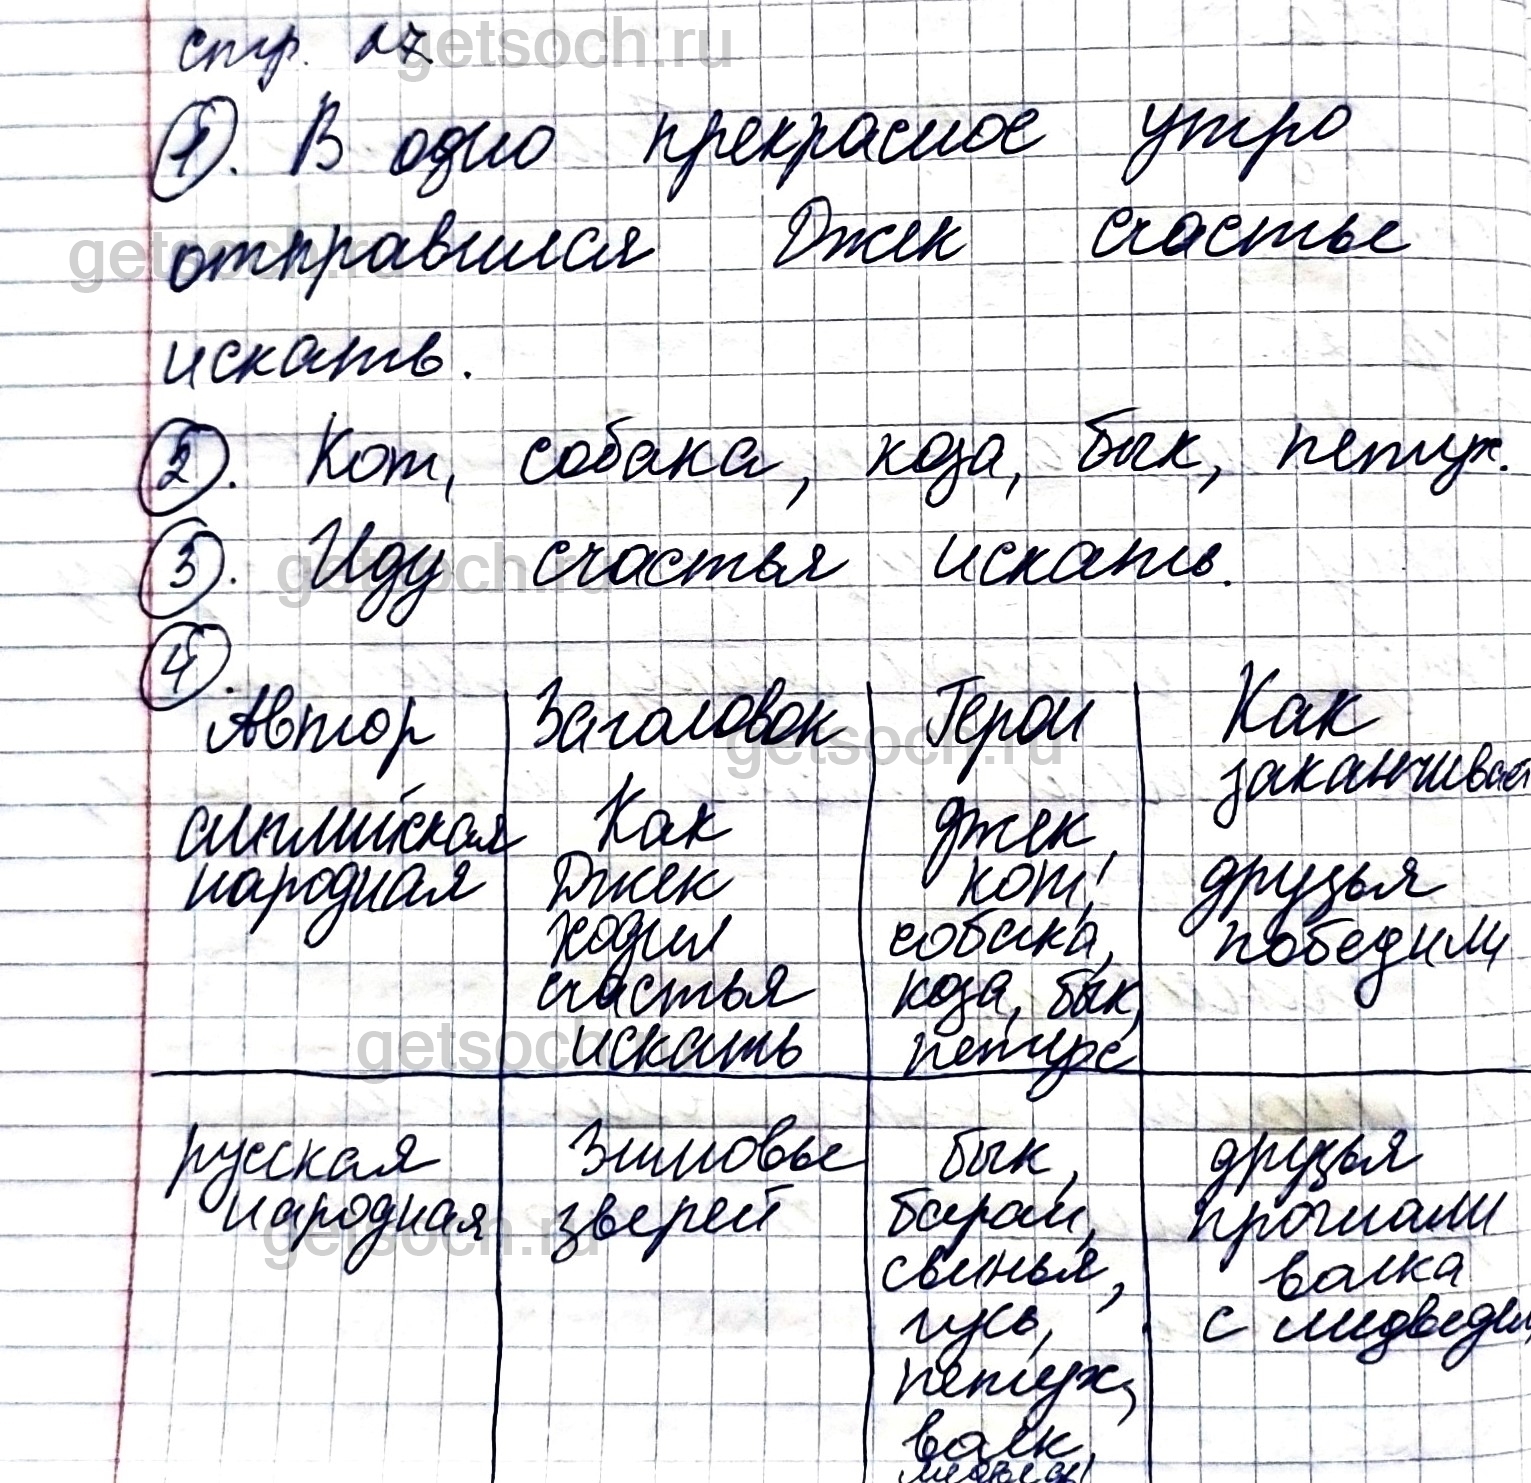 стр. 27
1. В одно прекрасное утро
отправился Джек счастье
искать.
2. Кот, собака, коза, бык, петух.
3. Иду счастья искать.
4.
Автор | Заголовок | Герои | Как заканчивает
английская народная | Как Джек ходил счастья искать | Джек, кот, собака, коза, бык, петух | друзья победили
русская народная | Зимовье зверей | бык, баран, свинья, гусь, петух, волк, медведь | друзья прогнали волка с медведем
getsoch.ru
getsoch.ru
getsoch.ru
getsoch.ru
getsoch.ru
getsoch.ru